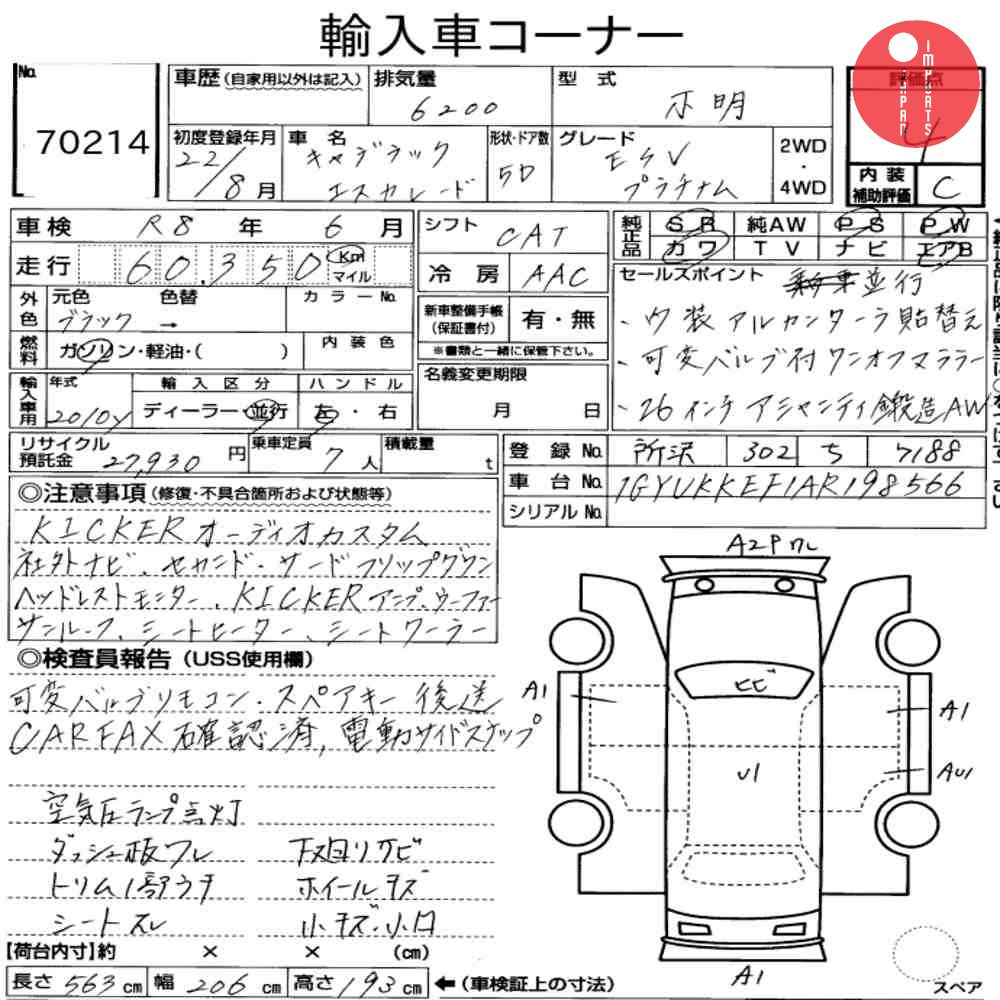 輸入車コーナー
IMPORTS JAPAN
No.
70214
車歴 (自家用以外は記入)
排気量
6200
型 式
不明
評価点
4
初度登録年月
22/8月
車 名
キャデラック
エスカレード
形状・ドア数
5D
グレード
ESV
プラチナム
2WD
・
4WD
内装補助評価
C
車検 R8 年 6 月
走行 60,350 Km マイル
シフト CAT
冷房 AAC
純正品 SR 純AW PS PW
カワ TV ナビ エアB
外色
元色 色替
ブラック →
カラーNo.
燃料 ガソリン・軽油・( )
内装色
新車整備手帳
(保証書付)
有・無
※書類と一緒に保管下さい。
名義変更期限
月 日
セールスポイント 並行
・内装アルカンターラ貼替え
・可変バルブ付ワンオフマフラー
・26インチ アシャンティ鍛造AW
輸入車用
年式
2010y
輸入区分
ディーラー・並行
ハンドル
左・右
リサイクル預託金 27,930 円
乗車定員 7 人
積載量 t
登録No. 所沢 302 ち 7188
車台No. 1GYUKKEF1AR198566
シリアルNo.
◎注意事項 (修復・不具合箇所および状態等)
KICKERオーディオカスタム
社外ナビ、セカンド・サードフリップダウン
ヘッドレストモニター、KICKERアンプ、ウーファー
サンルーフ、シートヒーター、シートクーラー
◎検査員報告 (USS使用欄)
可変バルブリモコン・スペアキー後送
CARFAX確認済, 電動サイドステップ
空気圧ランプ点灯
ダッシュ板ワレ 下廻りサビ
トリム1部ウキ ホイールキズ
シートスレ 小キズ・小凹
A2Pワレ
A1
ヒビ
A1
U1
AU1
A1
スペア
【荷台内寸】約 × × (cm)
長さ 563 cm 幅 206 cm 高さ 193 cm ←(車検証上の寸法)